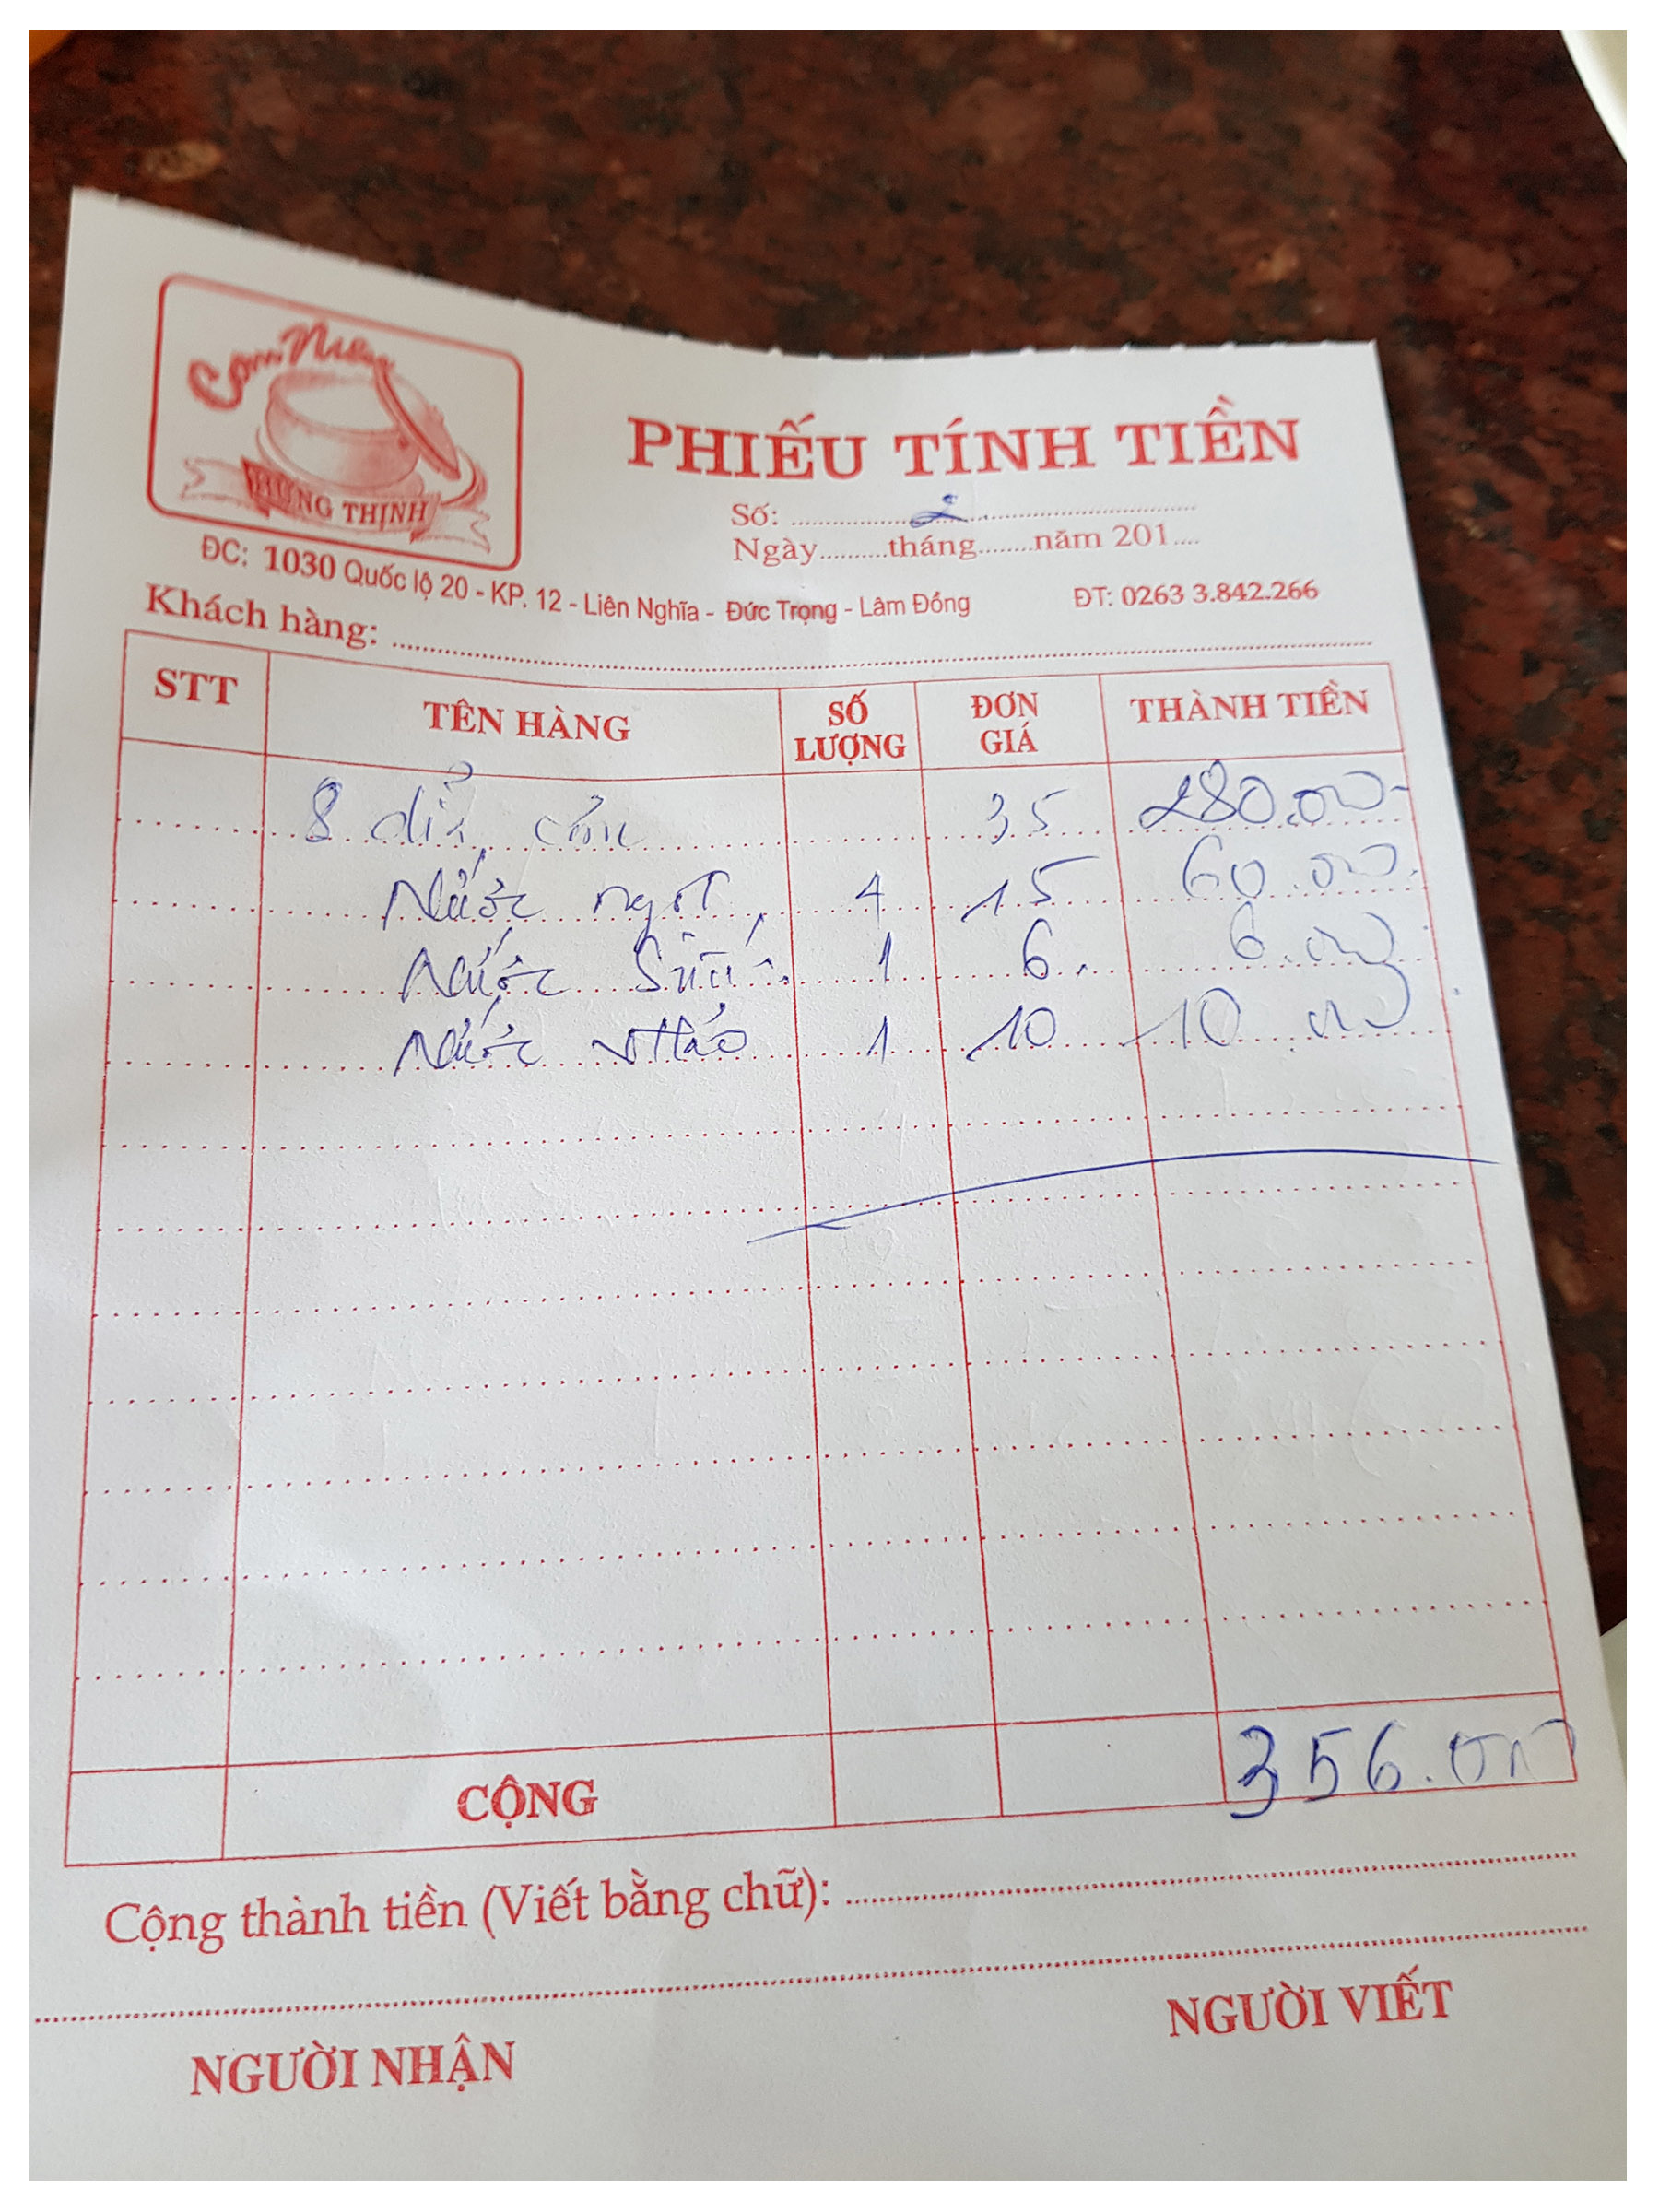 Cơm Niêu
HƯNG THỊNH
PHIẾU TÍNH TIỀN
Số: 2
Ngày.........tháng........năm 201....
ĐC: 1030 Quốc lộ 20 - KP. 12 - Liên Nghĩa - Đức Trọng - Lâm Đồng ĐT: 0263 3.842.266
Khách hàng:
STT TÊN HÀNG SỐ LƯỢNG ĐƠN GIÁ THÀNH TIỀN
8 dĩa cơm 35 280.000
Nước ngọt 4 15 60.000
Nước Suối 1 6 6.000
Nước 1 10 10 000
CỘNG 356.000
Cộng thành tiền (Viết bằng chữ):
NGƯỜI NHẬN NGƯỜI VIẾT